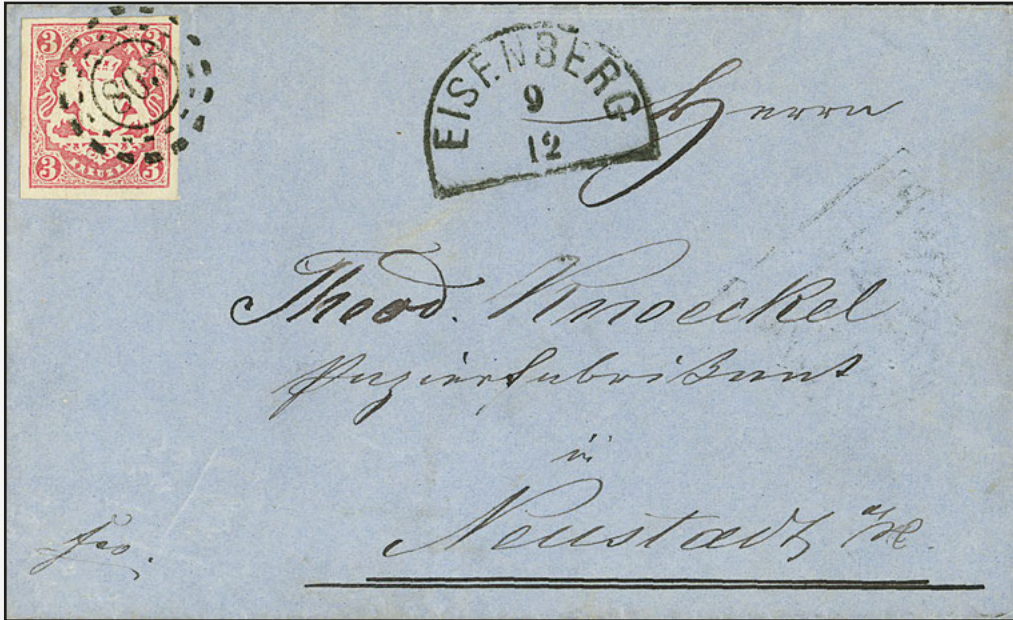 3 3
3 3
KREUZER
EISENBERG
9
12
Herrn
Theod. Knoeckel
Papierfabrikant
in
Neustadt a/H.
fco.